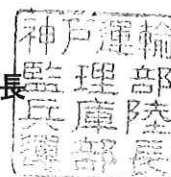 長
神戸運輸
監理部
兵庫陸
運部長